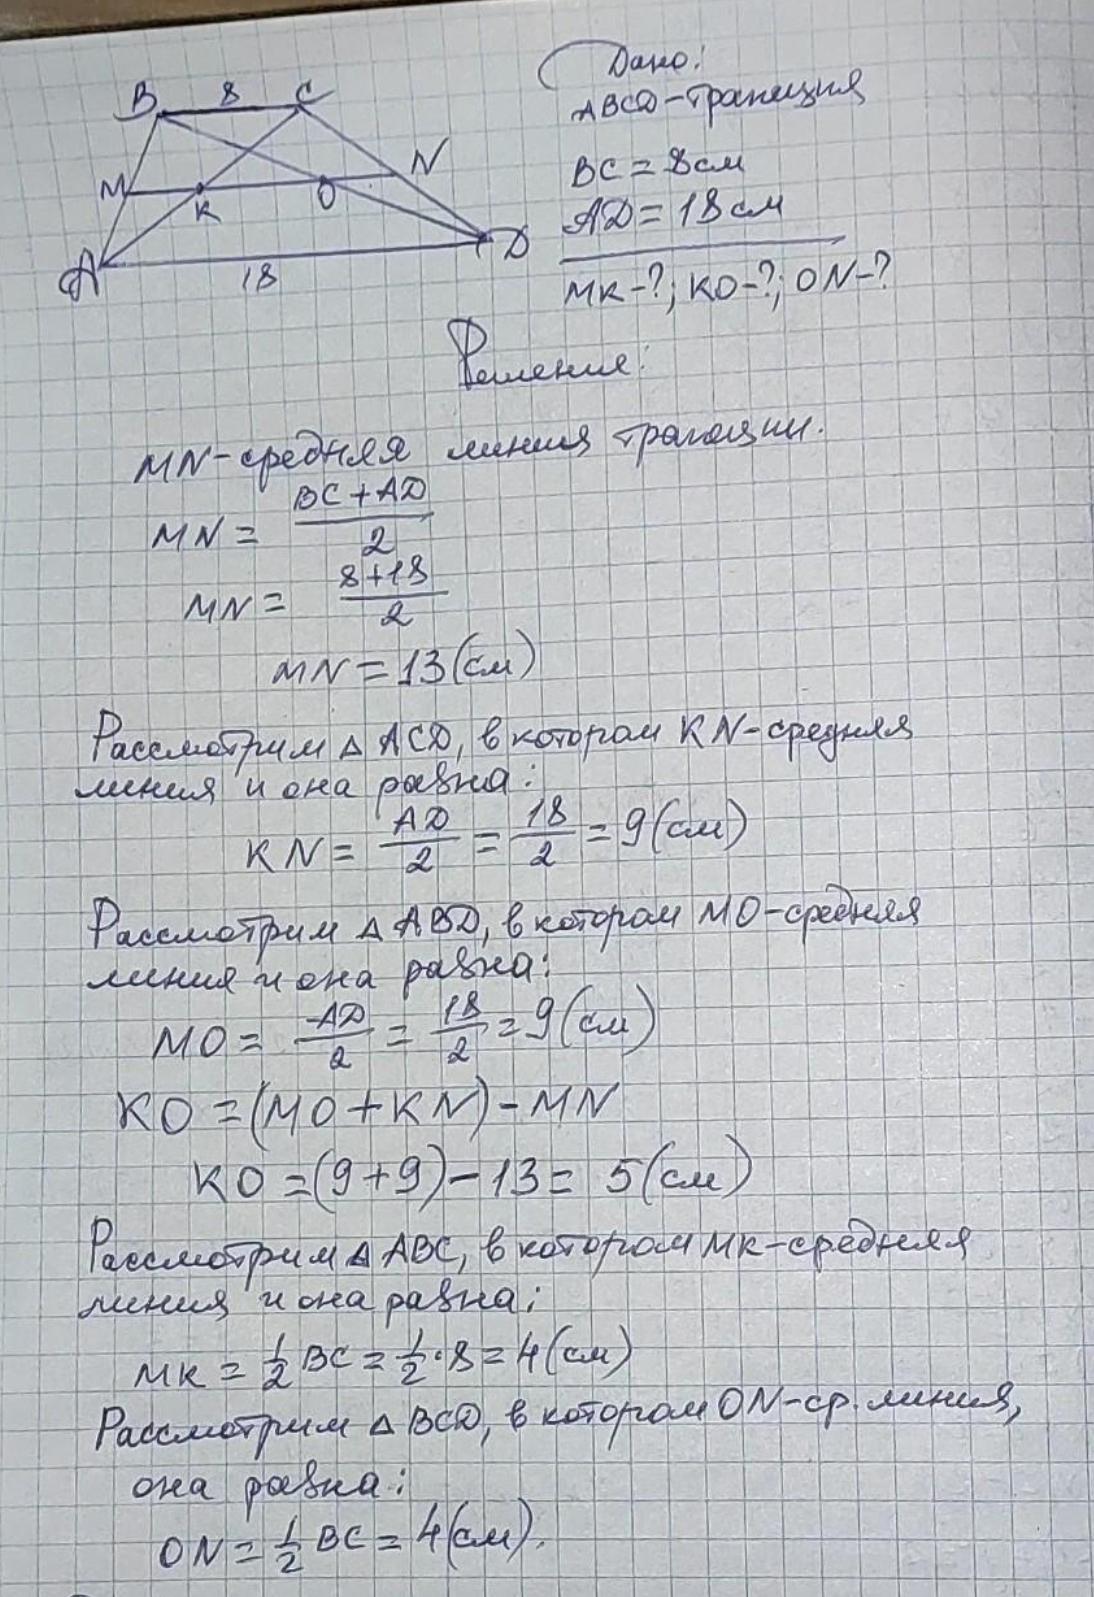 B 8 C
M K O N
A 18 D
Дано:
ABCD-трапеция
BC = 8см
AD = 18см
MK-?; KO-?; ON-?
Решение:
MN-средняя линия трапеции.
MN = \frac{BC+AD}{2}
MN = \frac{8+18}{2}
MN = 13(см)
Рассмотрим △ ACD, в котором KN-средняя
линия и она равна:
KN = \frac{AD}{2} = \frac{18}{2} = 9(см)
Рассмотрим △ ABD, в котором MO-средняя
линия и она равна:
MO = \frac{AD}{2} = \frac{18}{2} = 9(см)
KO = (MO+KN)-MN
KO = (9+9)-13 = 5(см)
Рассмотрим △ ABC, в котором MK-средняя
линия и она равна:
MK = \frac{1}{2} BC = \frac{1}{2} · 8 = 4(см)
Рассмотрим △ BCD, в котором ON-ср. линия,
она равна:
ON = \frac{1}{2} BC = 4(см).